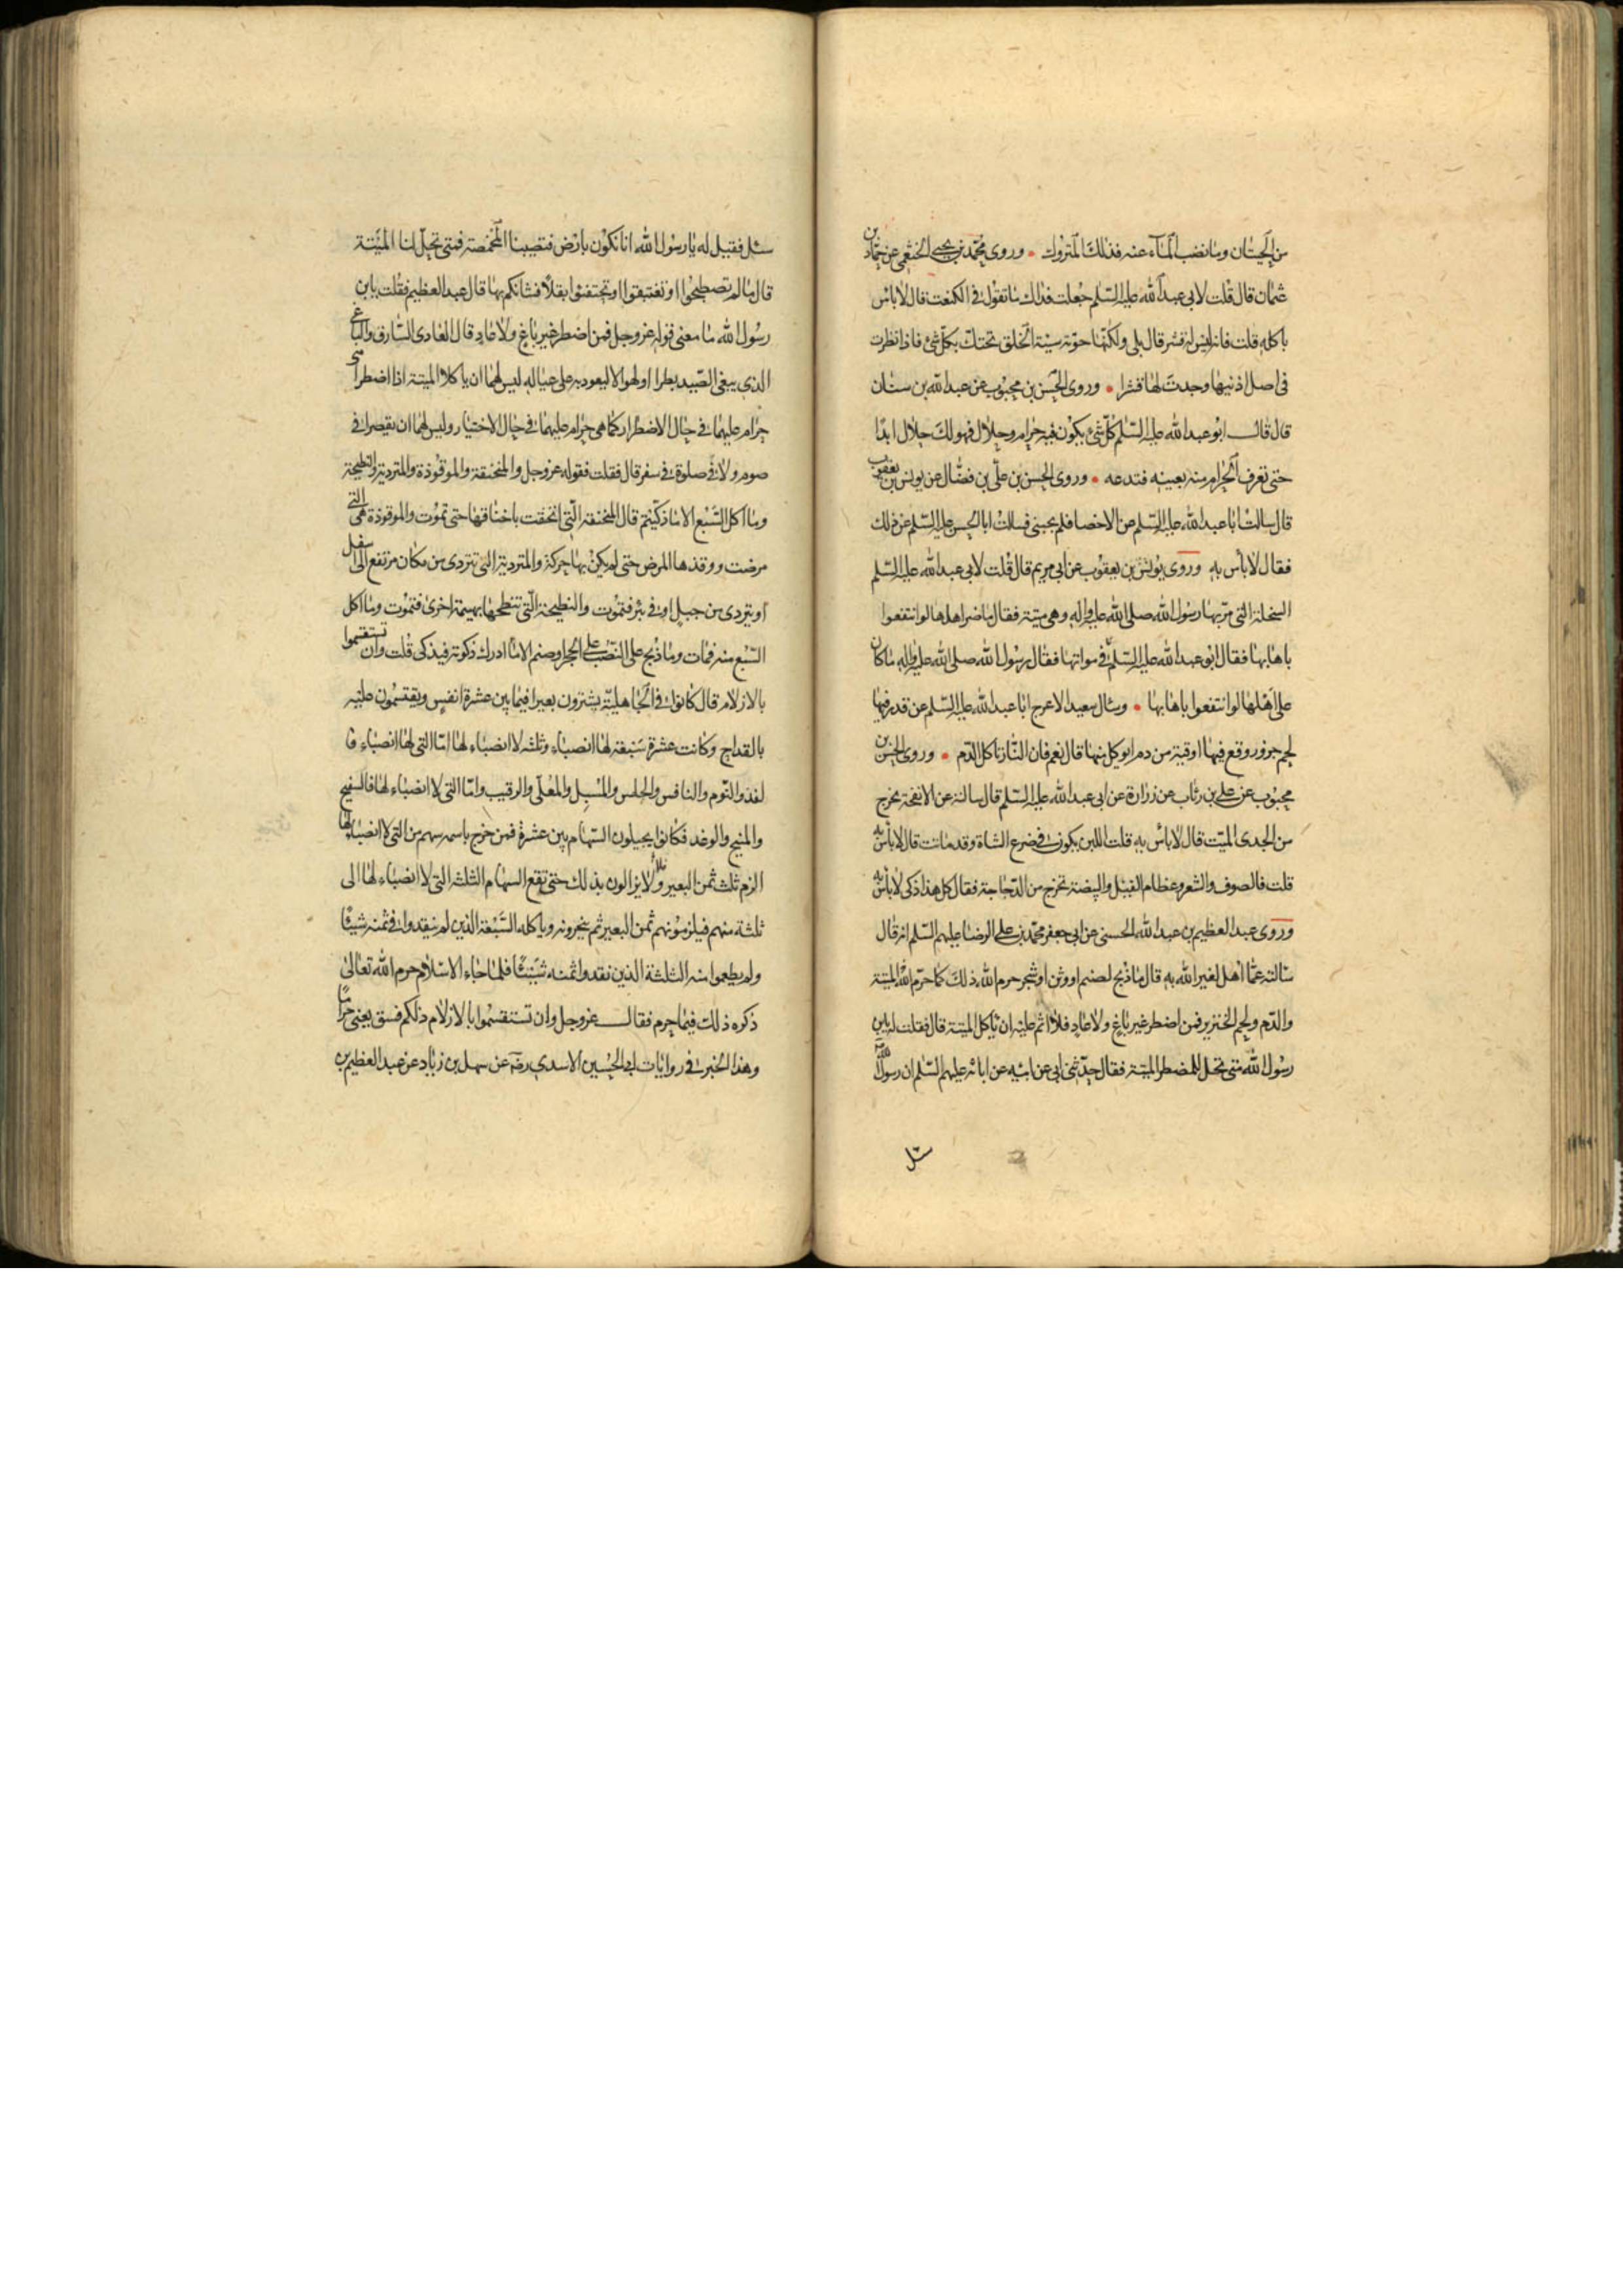 من الحيتان وما نضب الماء عنه فذلك المتروك • وروى محمد بن يحيى الخثعمى عن حماد بن
عثمان قال قلت لابى عبد الله عليه السلم جعلت فداك ما تقول فى الكنعت قال لا باس
باكله قلت فانه ليس له قشر قال بلى ولكنها حوتة سيئة الخلق تحتك بكل شئ فاذا نظرت
فى اصل اذنيها وجدت لها قشرا • وروى الحسن بن محبوب عن عبد الله بن سنان
قال قال ابو عبد الله عليه السلم كل شئ يكون فيه حرام وحلال فهو لك حلال ابدا
حتى تعرف الحرام منه بعينه فتدعه • وروى الحسن بن على بن فضال عن يونس بن يعقوب
قال سالت ابا عبد الله عليه السلم عن الاخصا فلم يجبنى فسالت ابا الحسن عليه السلم عن ذلك
فقال لا بأس به وروى يونس بن يعقوب عن ابى مريم قال قلت لابى عبد الله عليه السلم
السخلة التى مر بها رسول الله صلى الله عليه واله وهى ميتة فقال ما ضر اهلها لو انتفعوا
باهابها فقال ابو عبد الله عليه السلم فى مواتها فقال رسول الله صلى الله عليه واله ما كان
على اهلها لو انتفعوا باهابها • وسال سعيد الاعرج ابا عبد الله عليه السلم عن قدر فيها
لحم جزور وقع فيها اوقية من دم ايوكل منها قال نعم فان النار تاكل الدم • وروى الحسن بن
محبوب عن على بن رئاب عن زرارة عن ابى عبد الله عليه السلم قال سالته عن الانفحة يخرج
من الجدى الميت قال لا بأس به قلت اللبن يكون فى ضرع الشاة وقد ماتت قال لا بأس به
قلت فالصوف والشعر وعظام الفيل والبيضة تخرج من الدجاجة فقال كل هذا ذكى لا بأس به
وروى عبد العظيم بن عبد الله الحسنى عن ابى جعفر محمد بن على الرضا عليهم السلم انه قال
سالته عما اهل لغير الله به قال ما ذبح لصنم او وثن او شجر حرم الله ذلك كما حرم الله الميتة
والدم ولحم الخنزير فمن اضطر غير باغ ولا عاد فلا اثم عليه ان ياكل الميتة قال فقلت له يابن
رسول الله متى تحل للمضطر الميتة فقال حدثنى ابى عن ابيه عن ابائه عليهم السلم ان رسول الله
سئل
سئل فقيل له يا رسول الله انا نكون بارض فتصيبنا المخمصة فمتى تحل لنا الميتة
قال ما لم تصطبحوا او تغتبقوا او تحتفئوا بقلا فشانكم بها قال عبد العظيم فقلت يابن
رسول الله ما معنى قوله عز وجل فمن اضطر غير باغ ولا عاد قال العادى السارق والباغى
الذى يبغى الصيد بطرا او لهوا لا ليعود به على عياله ليس لهما ان ياكلا الميتة اذا اضطرا هى
حرام عليهما فى حال الاضطرار كما هى حرام عليهما فى حال الاختيار وليس لهما ان يقصرا فى
صوم ولا فى صلوة فى سفر قال فقلت فقوله عز وجل والمنخنقة والموقوذة والمتردية والنطيحة
وما اكل السبع الا ما ذكيتم قال المنخنقة التى انخنقت باخناقها حتى تموت والموقوذة هى التى
مرضت ووقذها المرض حتى لم يكن بها حركة والمتردية التى تتردى من مكان مرتفع الى اسفل
او يتردى من جبل او فى بئر فتموت والنطيحة التى تنطحها بهيمة اخرى فتموت وما اكل
السبع منه فمات وما ذبح على النصب على حجر او صنم الا ما ادرك ذكوته فيذكى قلت وان تستقسموا
بالازلام قال كانوا فى الجاهلية يشترون بعيرا فيما بين عشرة انفس ويقتسمون عليه
بالقداح وكانت عشرة سبعة لها انصباء وثلثه لا انصباء لها اما التى لها انصباء فا
لفذ والتوم والنافس والحلس والمسبل والمعلى والرقيب واما التى لا انصباء لها فالسفيح
والمنيح والوغد فكانوا يجيلون السهام بين عشرة فمن خرج باسمه سهم من التى لا انصباء لها
الزم ثلث ثمن البعير ولا يزالون بذلك حتى تقع السهام الثلثه التى لا انصباء لها الى
ثلثة منهم فيلزمونهم ثمن البعير ثم ينحرونه وياكله السبعة الذين لم ينقدوا فى ثمنه شيئا
ولم يطعموا منه الثلثة الذين نقدوا ثمنه شيئا فلما جاء الاسلام حرم الله تعالى
ذكره ذلك فيما حرم فقال عز وجل وان تستقسموا بالازلام ذلكم فسق يعنى حراما
وهذا الخبر فى روايات ابى الحسين الاسدى رضه عن سهل بن زياد عن عبد العظيم بن